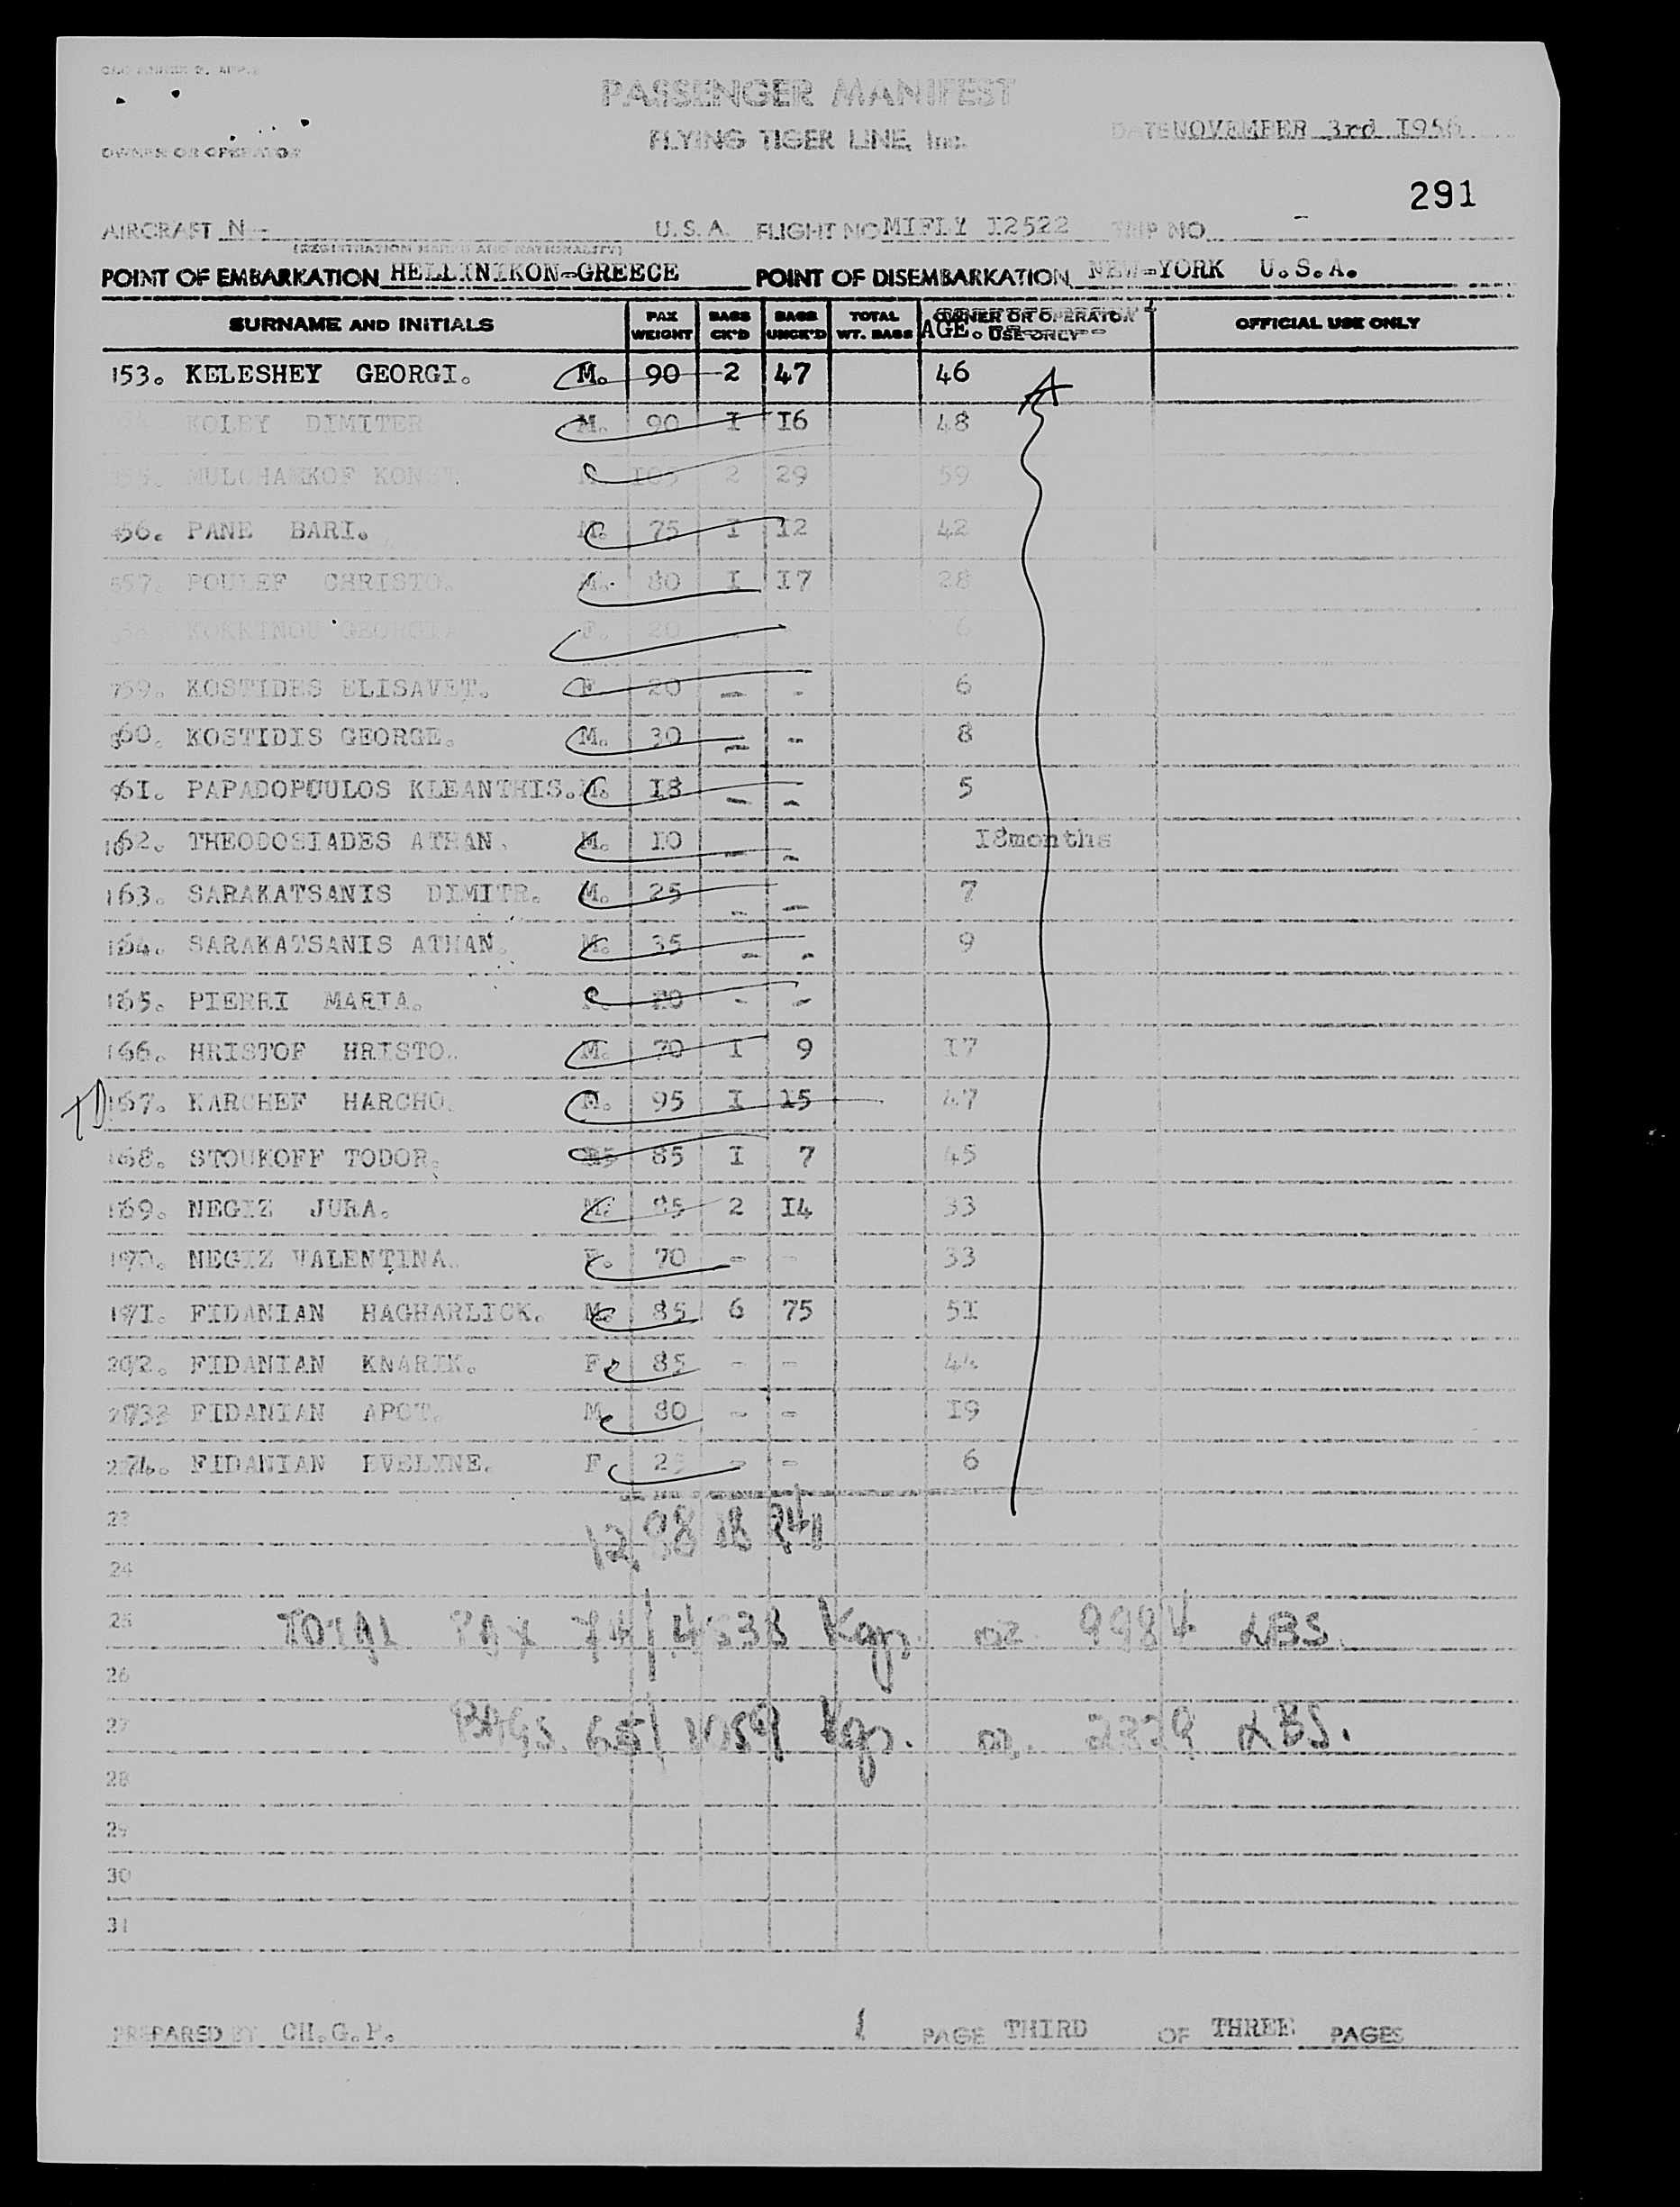 PASSENGER MANIFEST
FLYING TIGER LINE, Inc.
DATE NOVEMBER 3rd I956
OWNER OR OPERATOR
291
AIRCRAFT N - U.S.A. FLIGHT NO MIFLY I2522 TRIP NO -
(REGISTRATION MARKS AND NATIONALITY)
POINT OF EMBARKATION HELLINIKON-GREECE POINT OF DISEMBARKATION NEW-YORK U.S.A.
SURNAME AND INITIALS PAX WEIGHT BAGS CK'D BAGS UNCK'D TOTAL WT. BAGS OWNER OR OPERATOR USE ONLY AGE. OFFICIAL USE ONLY
153. KELESHEY GEORGI. M. 90 2 47 46
KOLEY DIMITER M. 90 I I6 48
MULCHAMKOF KONST. I05 2 29 59
56. PANE BARI. M. 75 I I2 42
57. POULEF CHRISTO. M. 80 I I7 28
KOKKINOU GEORGIA F. 20 6
59. KOSTIDES ELISAVET. F. 20 - - 6
60. KOSTIDIS GEORGE. M. 30 - - 8
6I. PAPADOPOULOS KLEANTHIS. M. I8 - - 5
62. THEODOSIADES ATHAN. M. I0 - - I8months
163. SARAKATSANIS DIMITR. M. 25 - - 7
164. SARAKATSANIS ATHAN. M. 35 - - 9
165. PIERRI MARIA. - -
166. HRISTOF HRISTO. M. 70 I 9 I7
TD 167. KARCHEF HARCHO. M. 95 I 15 47
168. STOUKOFF TODOR. 85 I 7 45
169. NEGIZ JURA. M. 2 I4 33
170. NEGIZ VALENTINA. F. 70 - - 33
17I. FIDANIAN HAGHARLICK. M. 85 6 75 5I
72. FIDANIAN KNARIK. F. 85 - - 44
73 FIDANIAN APOT. M. 80 - - I9
74. FIDANIAN EVELYNE. F. 25 - - 6
23
24
25 TOTAL PAX 74/4538 Kgr. or 9984 LBS.
26
27 BAGS. 65/1059 Kgr. or 2329 LBS.
28
29
30
31
PREPARED BY CH.G.P. 1 PAGE THIRD OF THREE PAGES